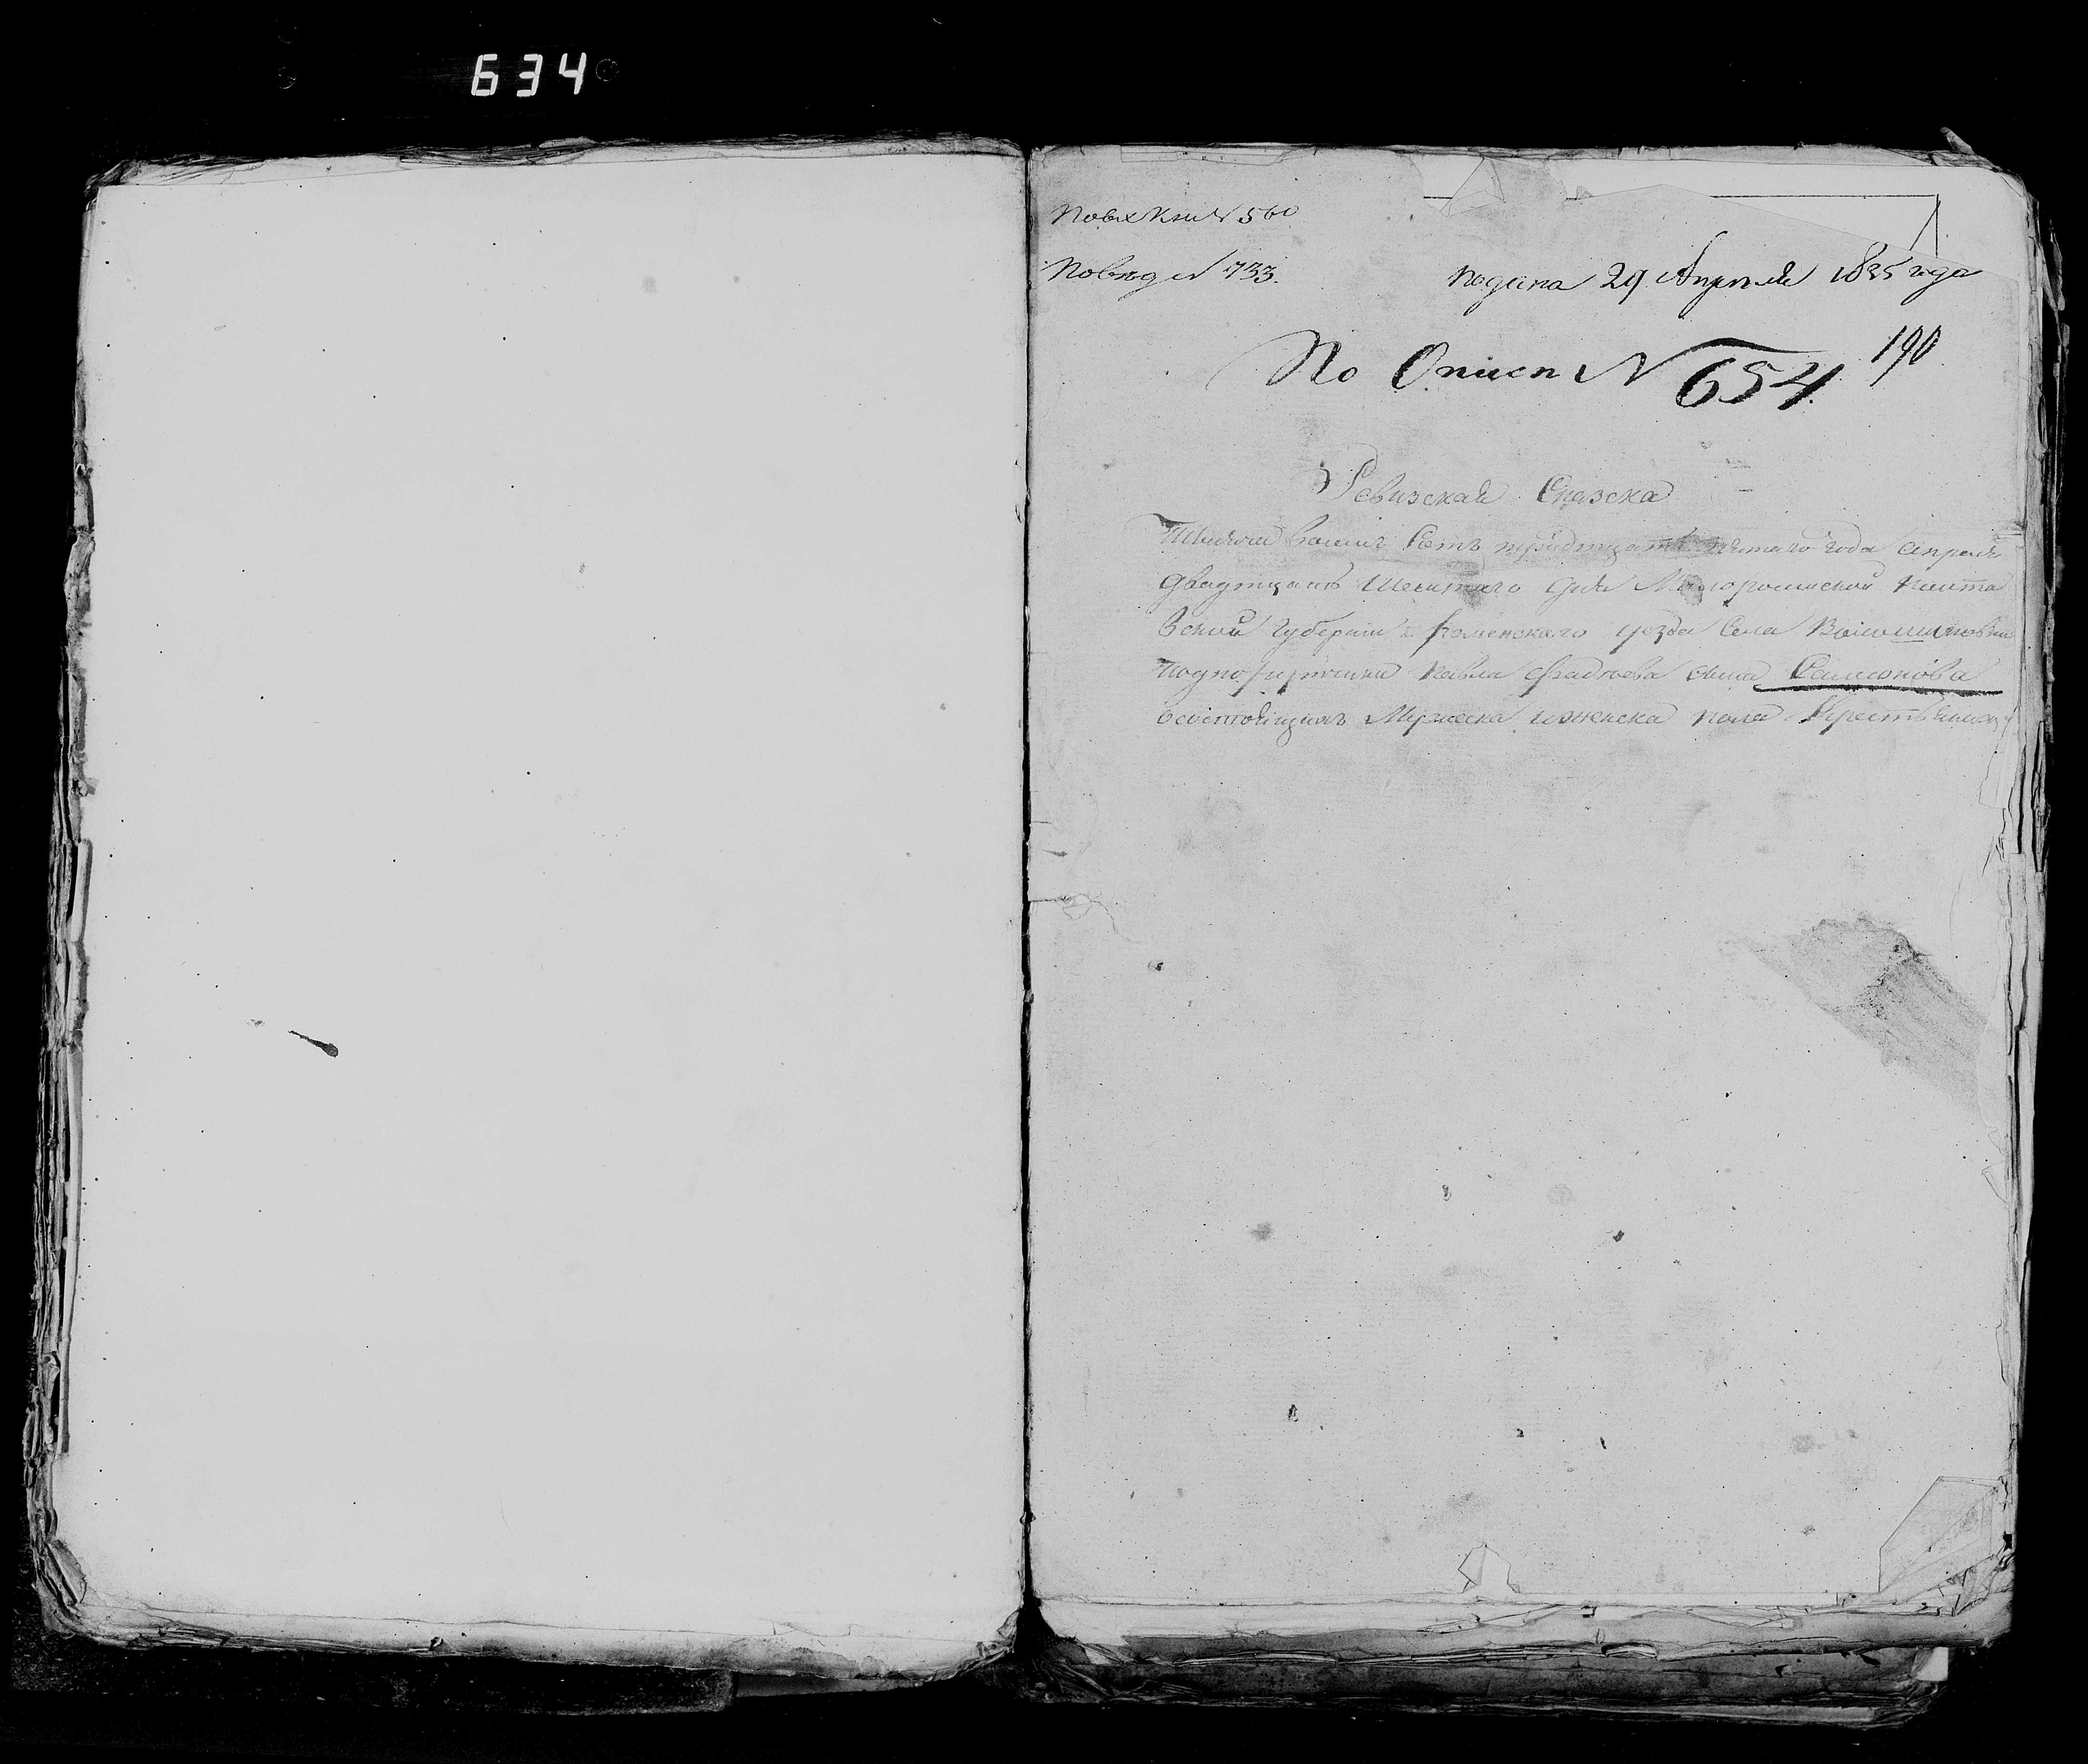 634
По вх Кни № 560
По вѣд № 733.
подана 29 Апреля 1835 года
По Описи № 654.
190
Ревизская Сказска
Тысяча восемь Сотъ тридцать пятаго года апреля
двадцать Шестаго дня Малоросииской Полта
вской Губернии Роменскаго уезда Села
подпо Павла Фадеева сына Самсонова
осостоящихъ Мужеска иженска пола Крестьянахъ